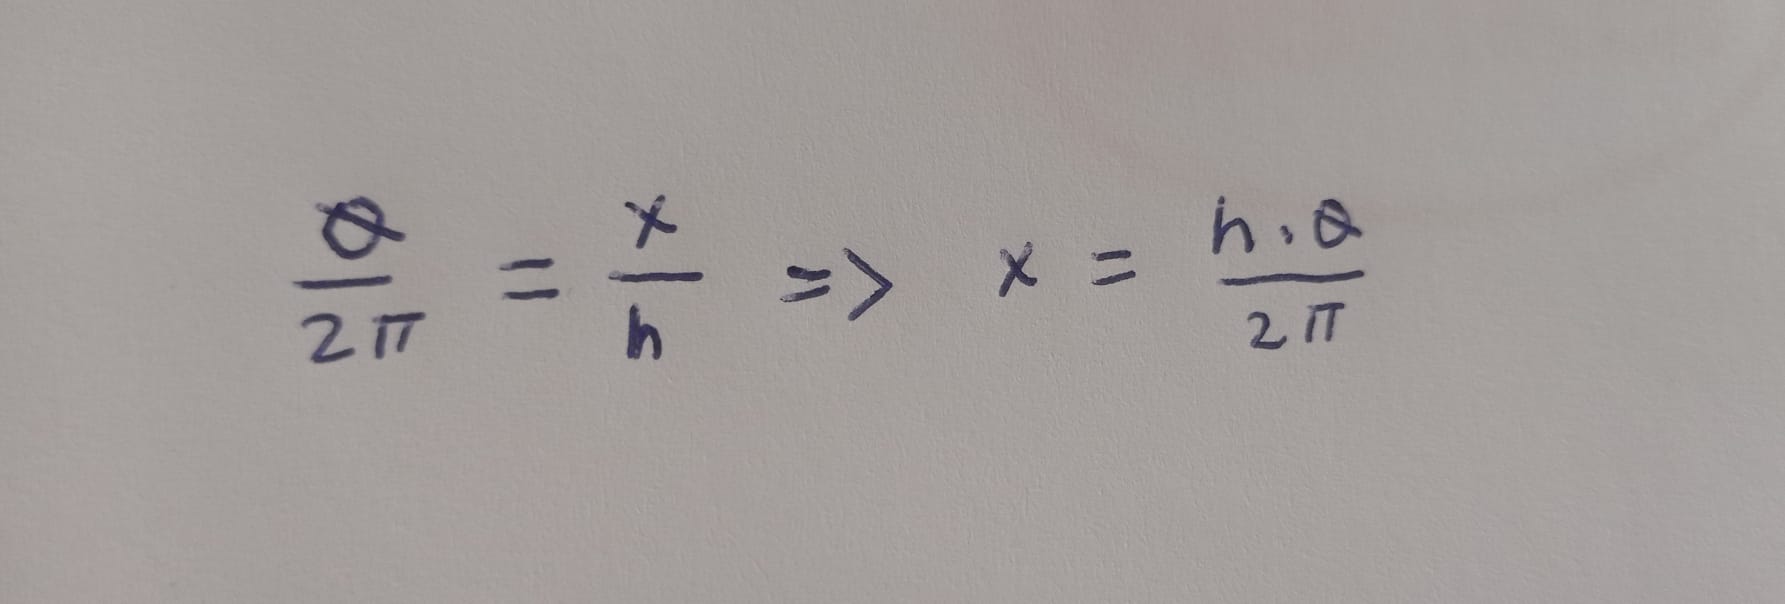 θ/2π = x/h => x = h·θ/2π